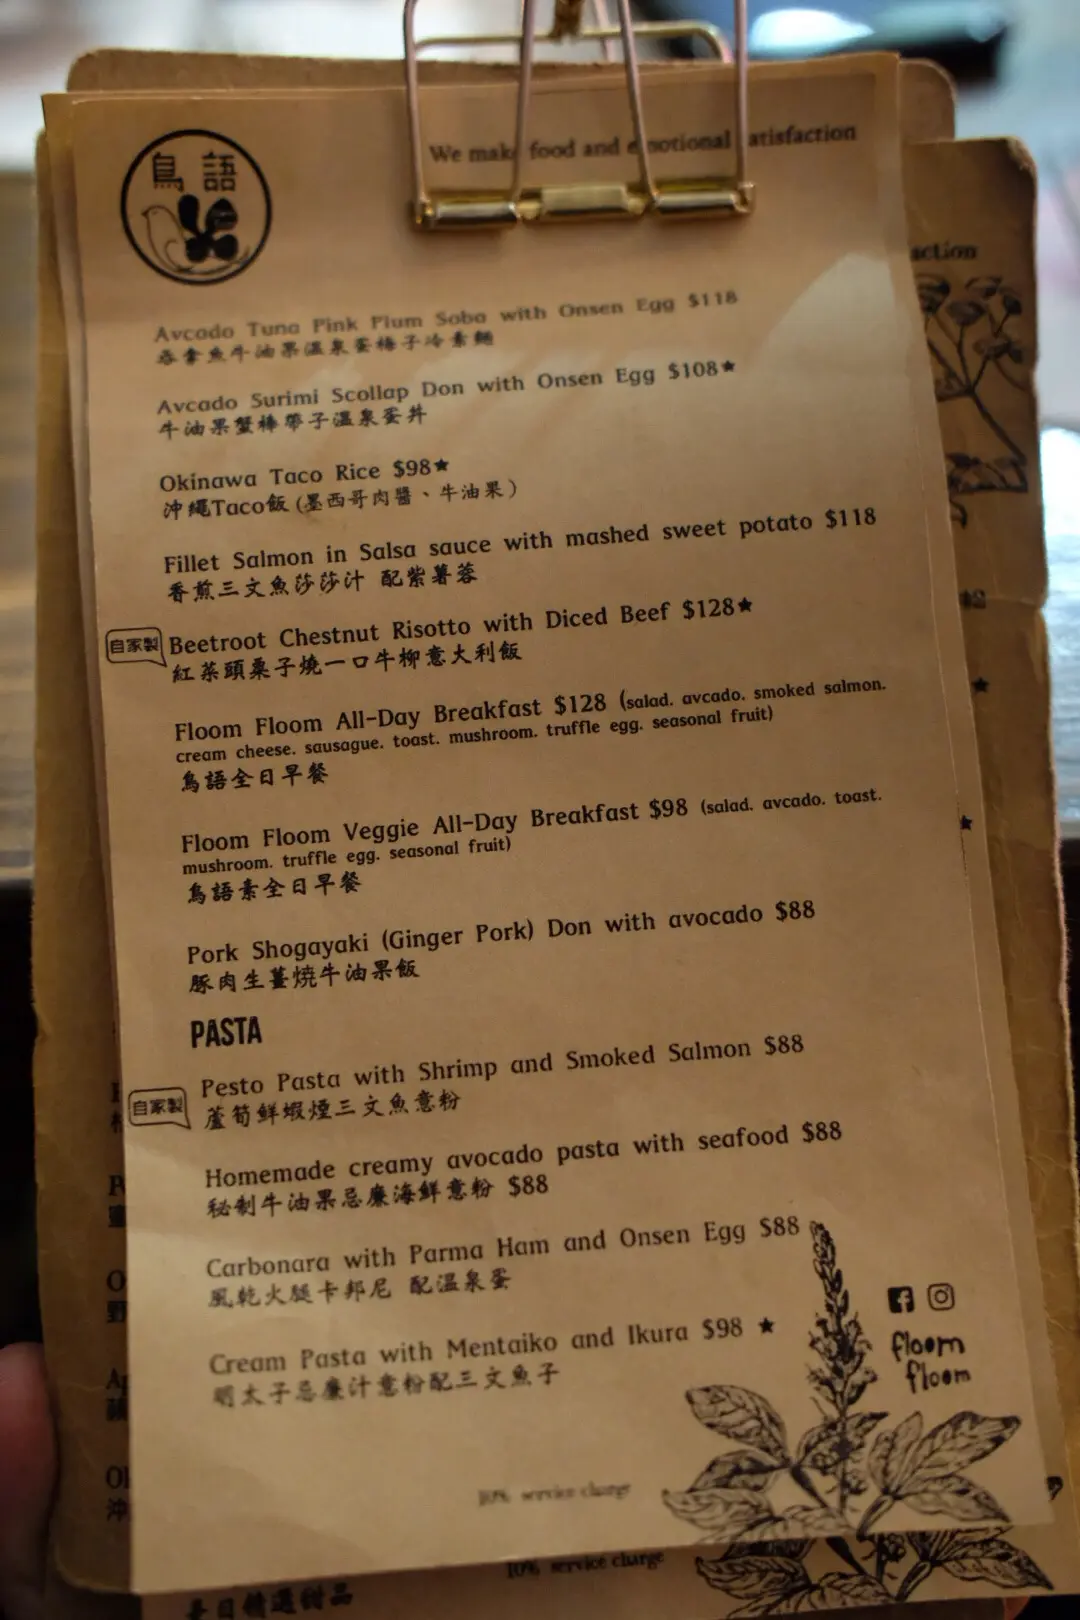 鳥語
We make food and emotional satisfaction
action
Avcado Tuna Pink Plum Soba with Onsen Egg $118
吞拿魚牛油果溫泉蛋梅子冷素麵
Avcado Surimi Scollap Don with Onsen Egg $108★
牛油果蟹棒帶子溫泉蛋丼
Okinawa Taco Rice $98★
沖繩Taco飯(墨西哥肉醬、牛油果)
Fillet Salmon in Salsa sauce with mashed sweet potato $118
香煎三文魚莎莎汁 配紫薯蓉
自家製
Beetroot Chestnut Risotto with Diced Beef $128★
紅菜頭栗子燒一口牛柳意大利飯
Floom Floom All-Day Breakfast $128 (salad. avcado. smoked salmon.
cream cheese. sausague. toast. mushroom. truffle egg. seasonal fruit)
鳥語全日早餐
Floom Floom Veggie All-Day Breakfast $98 (salad. avcado. toast.
mushroom. truffle egg. seasonal fruit)
鳥語素全日早餐
Pork Shogayaki (Ginger Pork) Don with avocado $88
豚肉生薑燒牛油果飯
PASTA
自家製
Pesto Pasta with Shrimp and Smoked Salmon $88
蘆筍鮮蝦煙三文魚意粉
Homemade creamy avocado pasta with seafood $88
秘制牛油果忌廉海鮮意粉 $88
Carbonara with Parma Ham and Onsen Egg $88
風乾火腿卡邦尼 配溫泉蛋
Cream Pasta with Mentaiko and Ikura $98 ★
明太子忌廉汁意粉配三文魚子
floom
floom
10% service charge
10% service charge